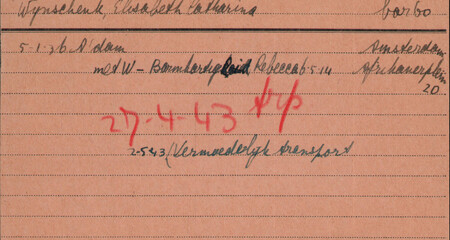 Wynschenk, Elisabeth Catharina barbo
5-1-26 A'dam Amsterdam
met W- Barnhardy Rebecca 6-5-14 Afrikanerplein
20
27-4-43 trp
2-5-43 (Vermoedelyk transport